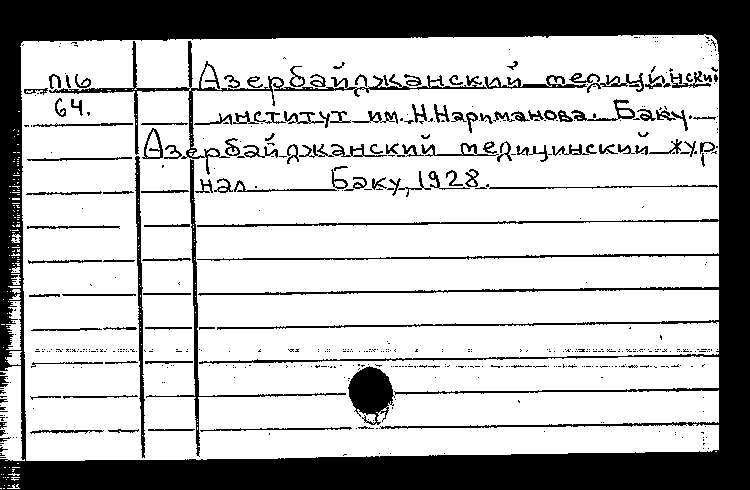 П16 Азербайджанский медицинский
64. институт им. Н.Нариманова. Баку.
Азербайджанский медицинский жур
нал. Баку, 1928.